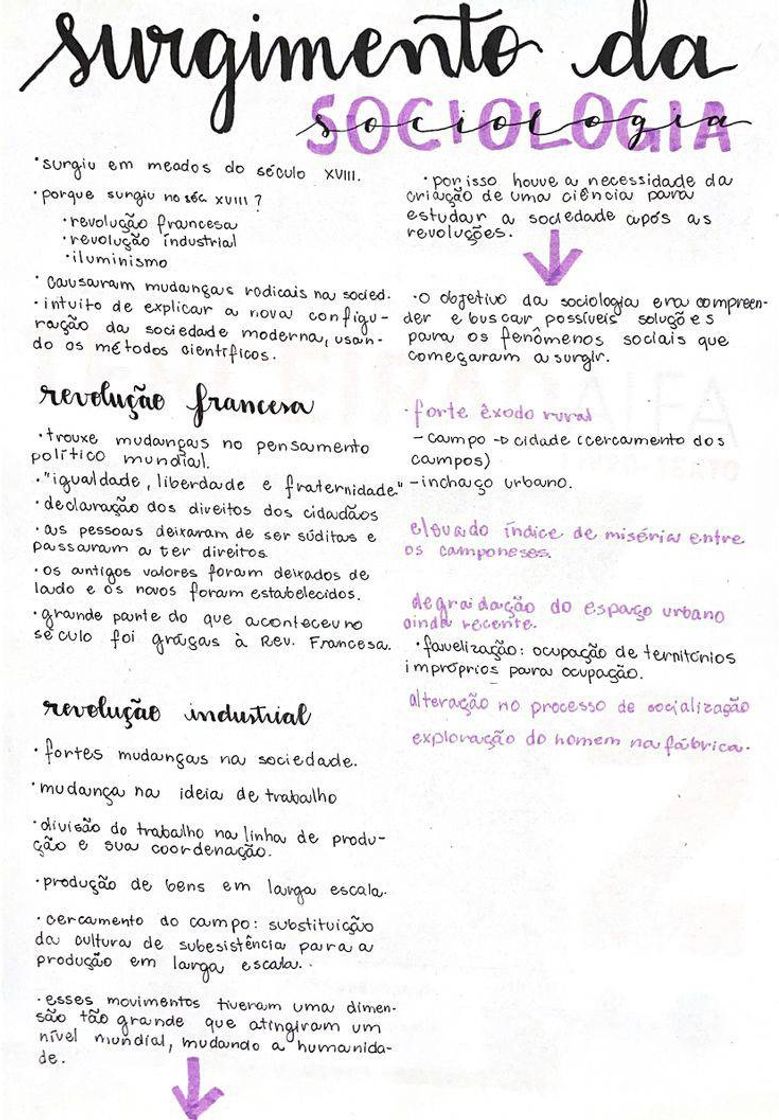 surgimento da
SOCIOLOGIA
sociologia
•surgiu em meados do século XVIII.
•porque surgiu no séc XVIII?
•revolução francesa
•revolução industrial
•iluminismo
•causaram mudanças radicais na socied.
•intuito de explicar a nova configu-
ração da sociedade moderna, usan-
do os métodos científicos.
revolução francesa
•trouxe mudanças no pensamento
político mundial.
•"igualdade, liberdade e fraternidade"
•declaração dos direitos dos cidadãos
•as pessoas deixaram de ser súditas e
passaram a ter direitos
•os antigos valores foram deixados de
lado e os novos foram estabelecidos.
•grande parte do que aconteceu no
século foi graças à Rev. Francesa.
revolução industrial
•fortes mudanças na sociedade.
•mudança na ideia de trabalho
•divisão do trabalho na linha de produ-
ção e sua coordenação.
•produção de bens em larga escala.
•cercamento do campo: substituição
da cultura de subesistência para a
produção em larga escala..
•esses movimentos tiveram uma dimen-
são tão grande que atingiram um
nível mundial, mudando a humanida-
de.
•por isso houve a necessidade da
criação de uma ciência para
estudar a sociedade após as
revoluções.
•O objetivo da sociologia era compreen-
der e buscar possíveis soluções
para os fenômenos sociais que
começaram a surgir.
•forte êxodo rural
-campo → cidade (cercamento dos
campos)
-inchaço urbano.
elevado índice de miséria entre
os camponeses.
degraidação do espaço urbano
ainda recente.
•favelização: ocupação de territórios
impróprios para ocupação.
alteração no processo de socialização
exploração do homem na fábrica.